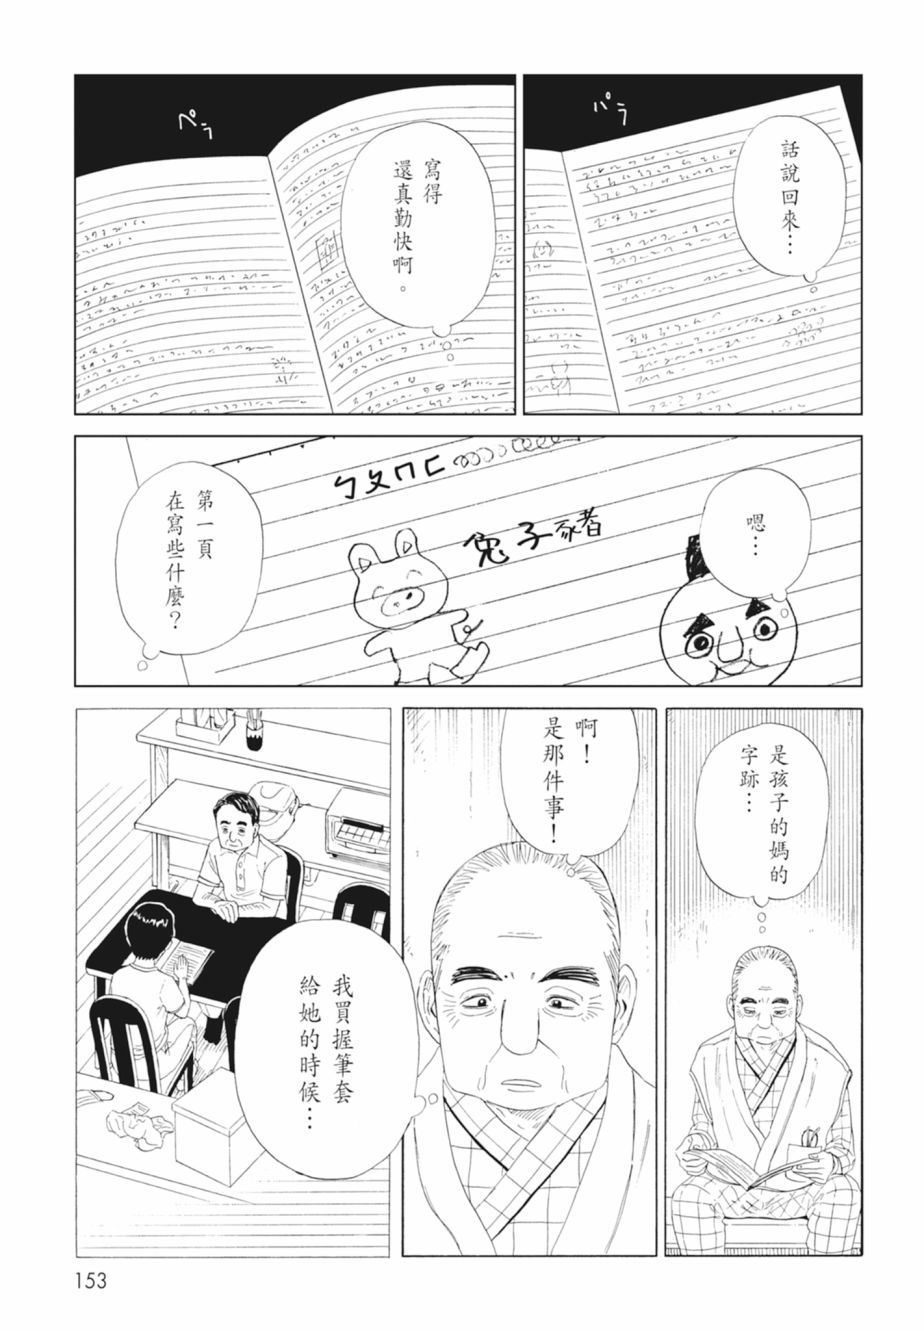 パラ
話說回來…
ペラ
寫得
還真勤快啊。
嗯…
ㄅㄆㄇㄈ
兔子豬
第一頁
在寫些什麼？
是孩子的媽的
字跡…
啊！
是那件事！
我買握筆套
給她的時候…
153